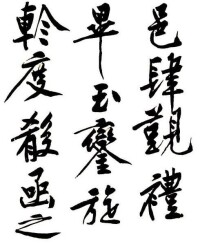 邑肆覲禮
畢玉鑾旋
軨度殽函之